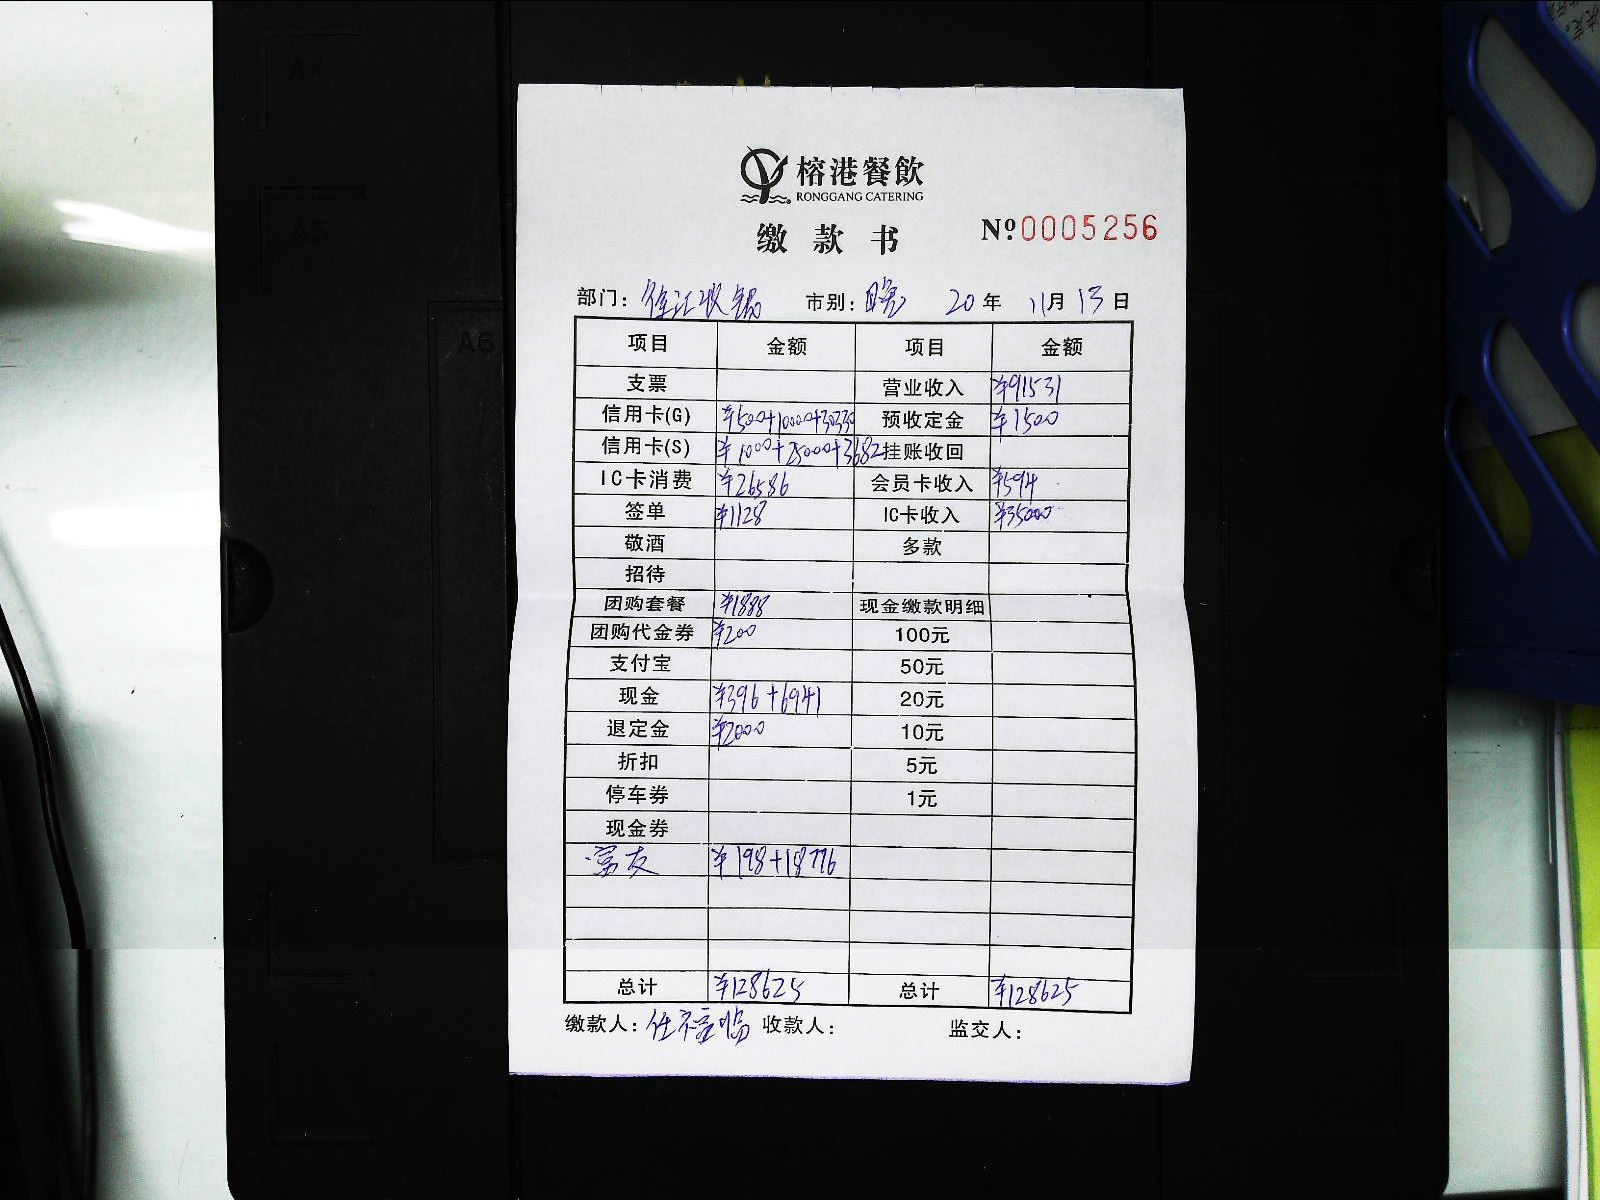 A4
A5
A6
榕港餐飲
RONGGANG CATERING
缴款书
№0005256
部门: 徐汇收银 市别: 晚 20年 11月 13日
项目 金额 项目 金额
支票 营业收入 ¥91531
信用卡(G) ¥500+10000+30330 预收定金 ¥1500
信用卡(S) ¥1000+25000+3682 挂账收回
IC卡消费 ¥26586 会员卡收入 ¥594
签单 ¥1128 IC卡收入 ¥35000
敬酒 多款
招待
团购套餐 ¥1888 现金缴款明细
团购代金券 ¥200 100元
支付宝 50元
现金 ¥396+6941 20元
退定金 ¥2000 10元
折扣 5元
停车券 1元
现金券
¥198+18776
总计 ¥128625 总计 ¥128625
缴款人: 收款人: 监交人: